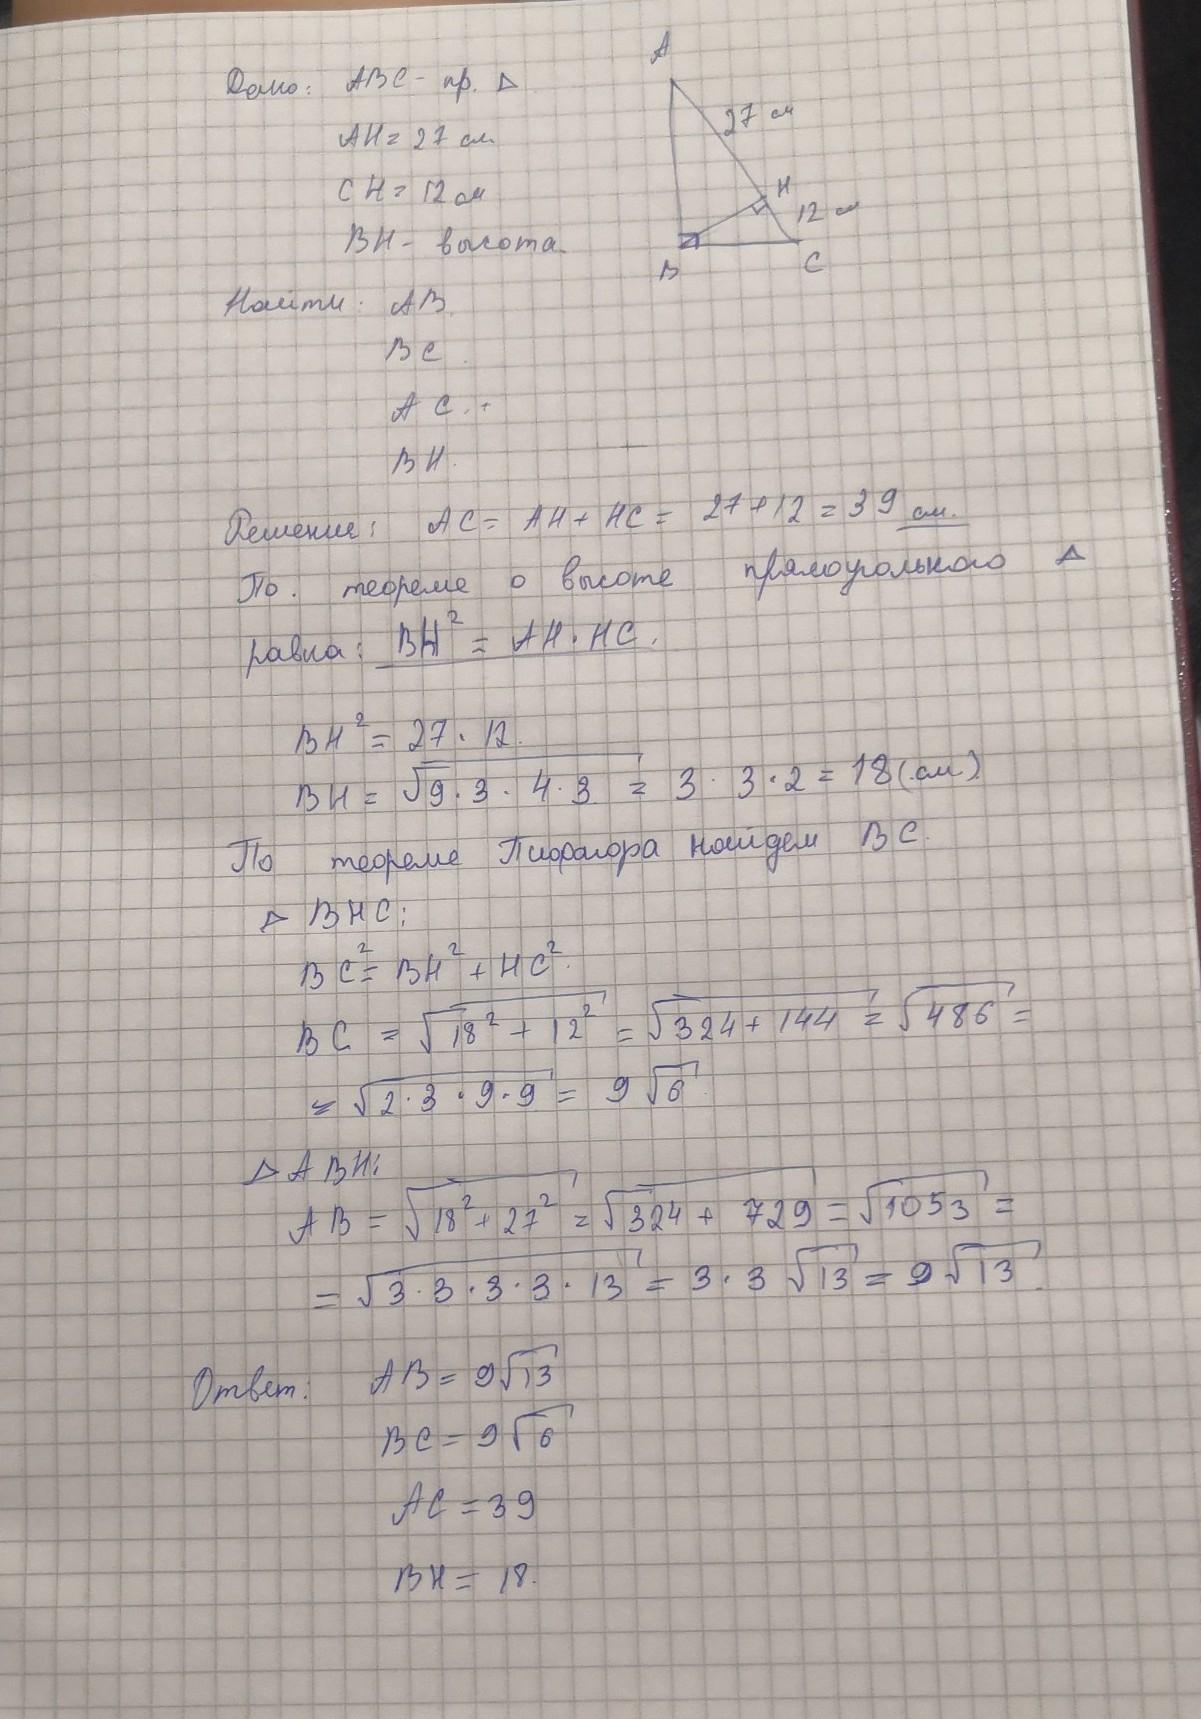 Дано: ABC - пр. △
AH = 27 см.
CH = 12 см
BH - высота.
A
27 см
H
12 см
B
C
Найти: AB.
BC.
AC.
BH.
Решение: AC = AH + HC = 27 + 12 = 39 см.
По. теореме о высоте прямоугольного △
равна: BH² = AH · HC.
BH² = 27 · 12.
BH = √9 · 3 · 4 · 3 = 3 · 3 · 2 = 18 (см.)
По теореме Пифагора найдем BC.
△ BHC:
BC² = BH² + HC².
BC = √18² + 12² = √324 + 144 = √486 =
= √2 · 3 · 9 · 9 = 9 √6
△ ABH:
AB = √18² + 27² = √324 + 729 = √1053 =
= √3 · 3 · 3 · 3 · 13 = 3 · 3 √13 = 9 √13.
Ответ: AB = 9√13
BC = 9√6
AC = 39
BH = 18.